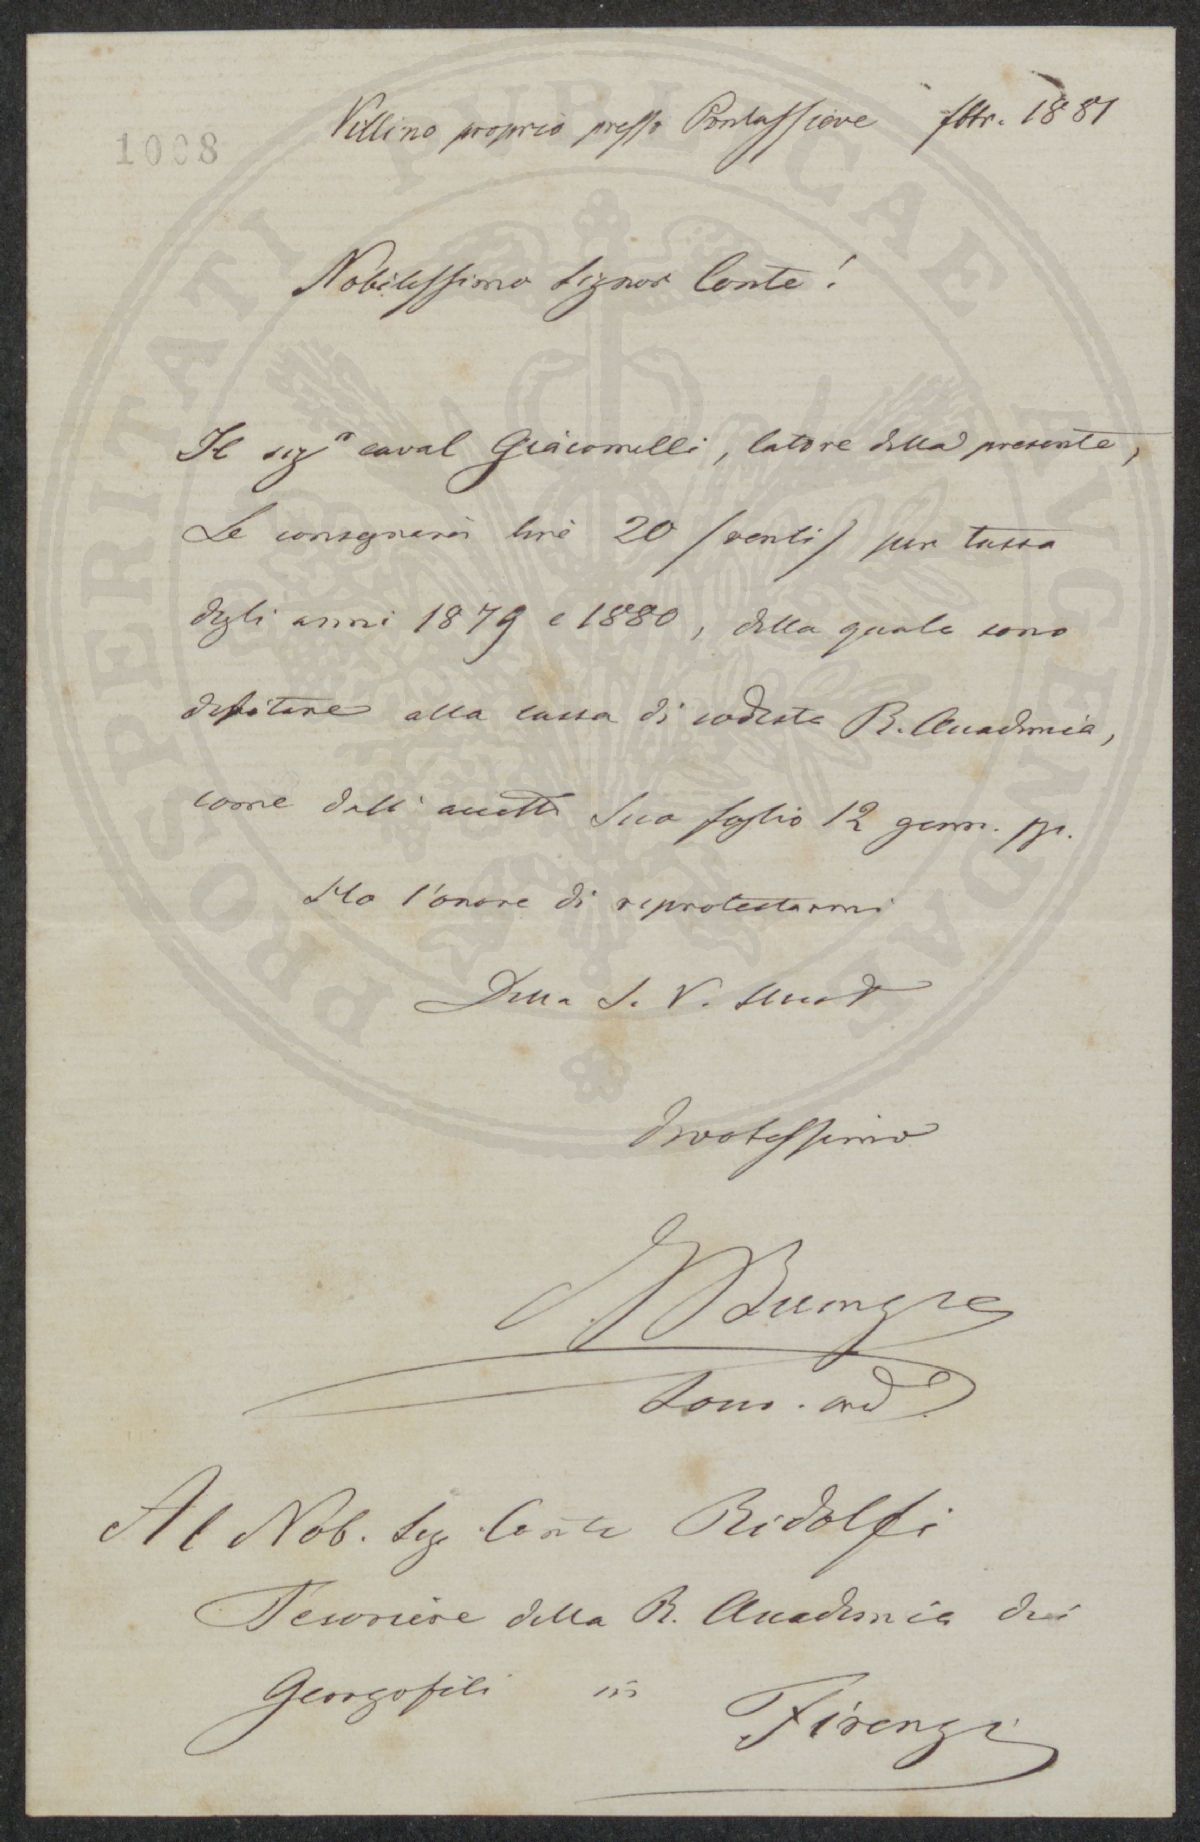 1008
Villino proprio presso Pontassieve fbbr. 1881
Nobilissimo Signor Conte!
Il sig.r caval Giacomelli, latore della presente,
Le consegnerà lire 20 (venti) per tassa
degli anni 1879 e 1880, della quale sono
debitore alla cassa di codesta R. Accademia,
come dall' accetto Suo foglio 12 genn. pp.
Ho l'onore di riprotestarmi
Della S. V. Illust
devotissimo
Socio. ord.
Al Nob. Sig Conte Ridolfi
Tesoriere della R. Accademia dei
Georgofili in Firenze
PROSPERITATI PUBLICAE AUGENDAE